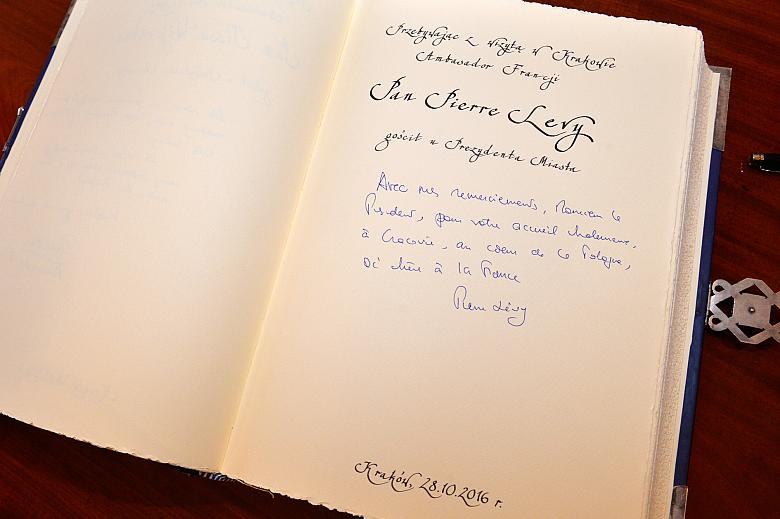 Przebywając z wizytą w Krakowie
Ambasador Francji
Pan Pierre Levy
gościł u Prezydenta Miasta
Avec mes remerciements, Monsieur le
Président, pour votre accueil chaleureux,
à Cracovie, au coeur de la Pologne,
si chère à la France
Pierre Lévy
Kraków, 28.10.2016 r.